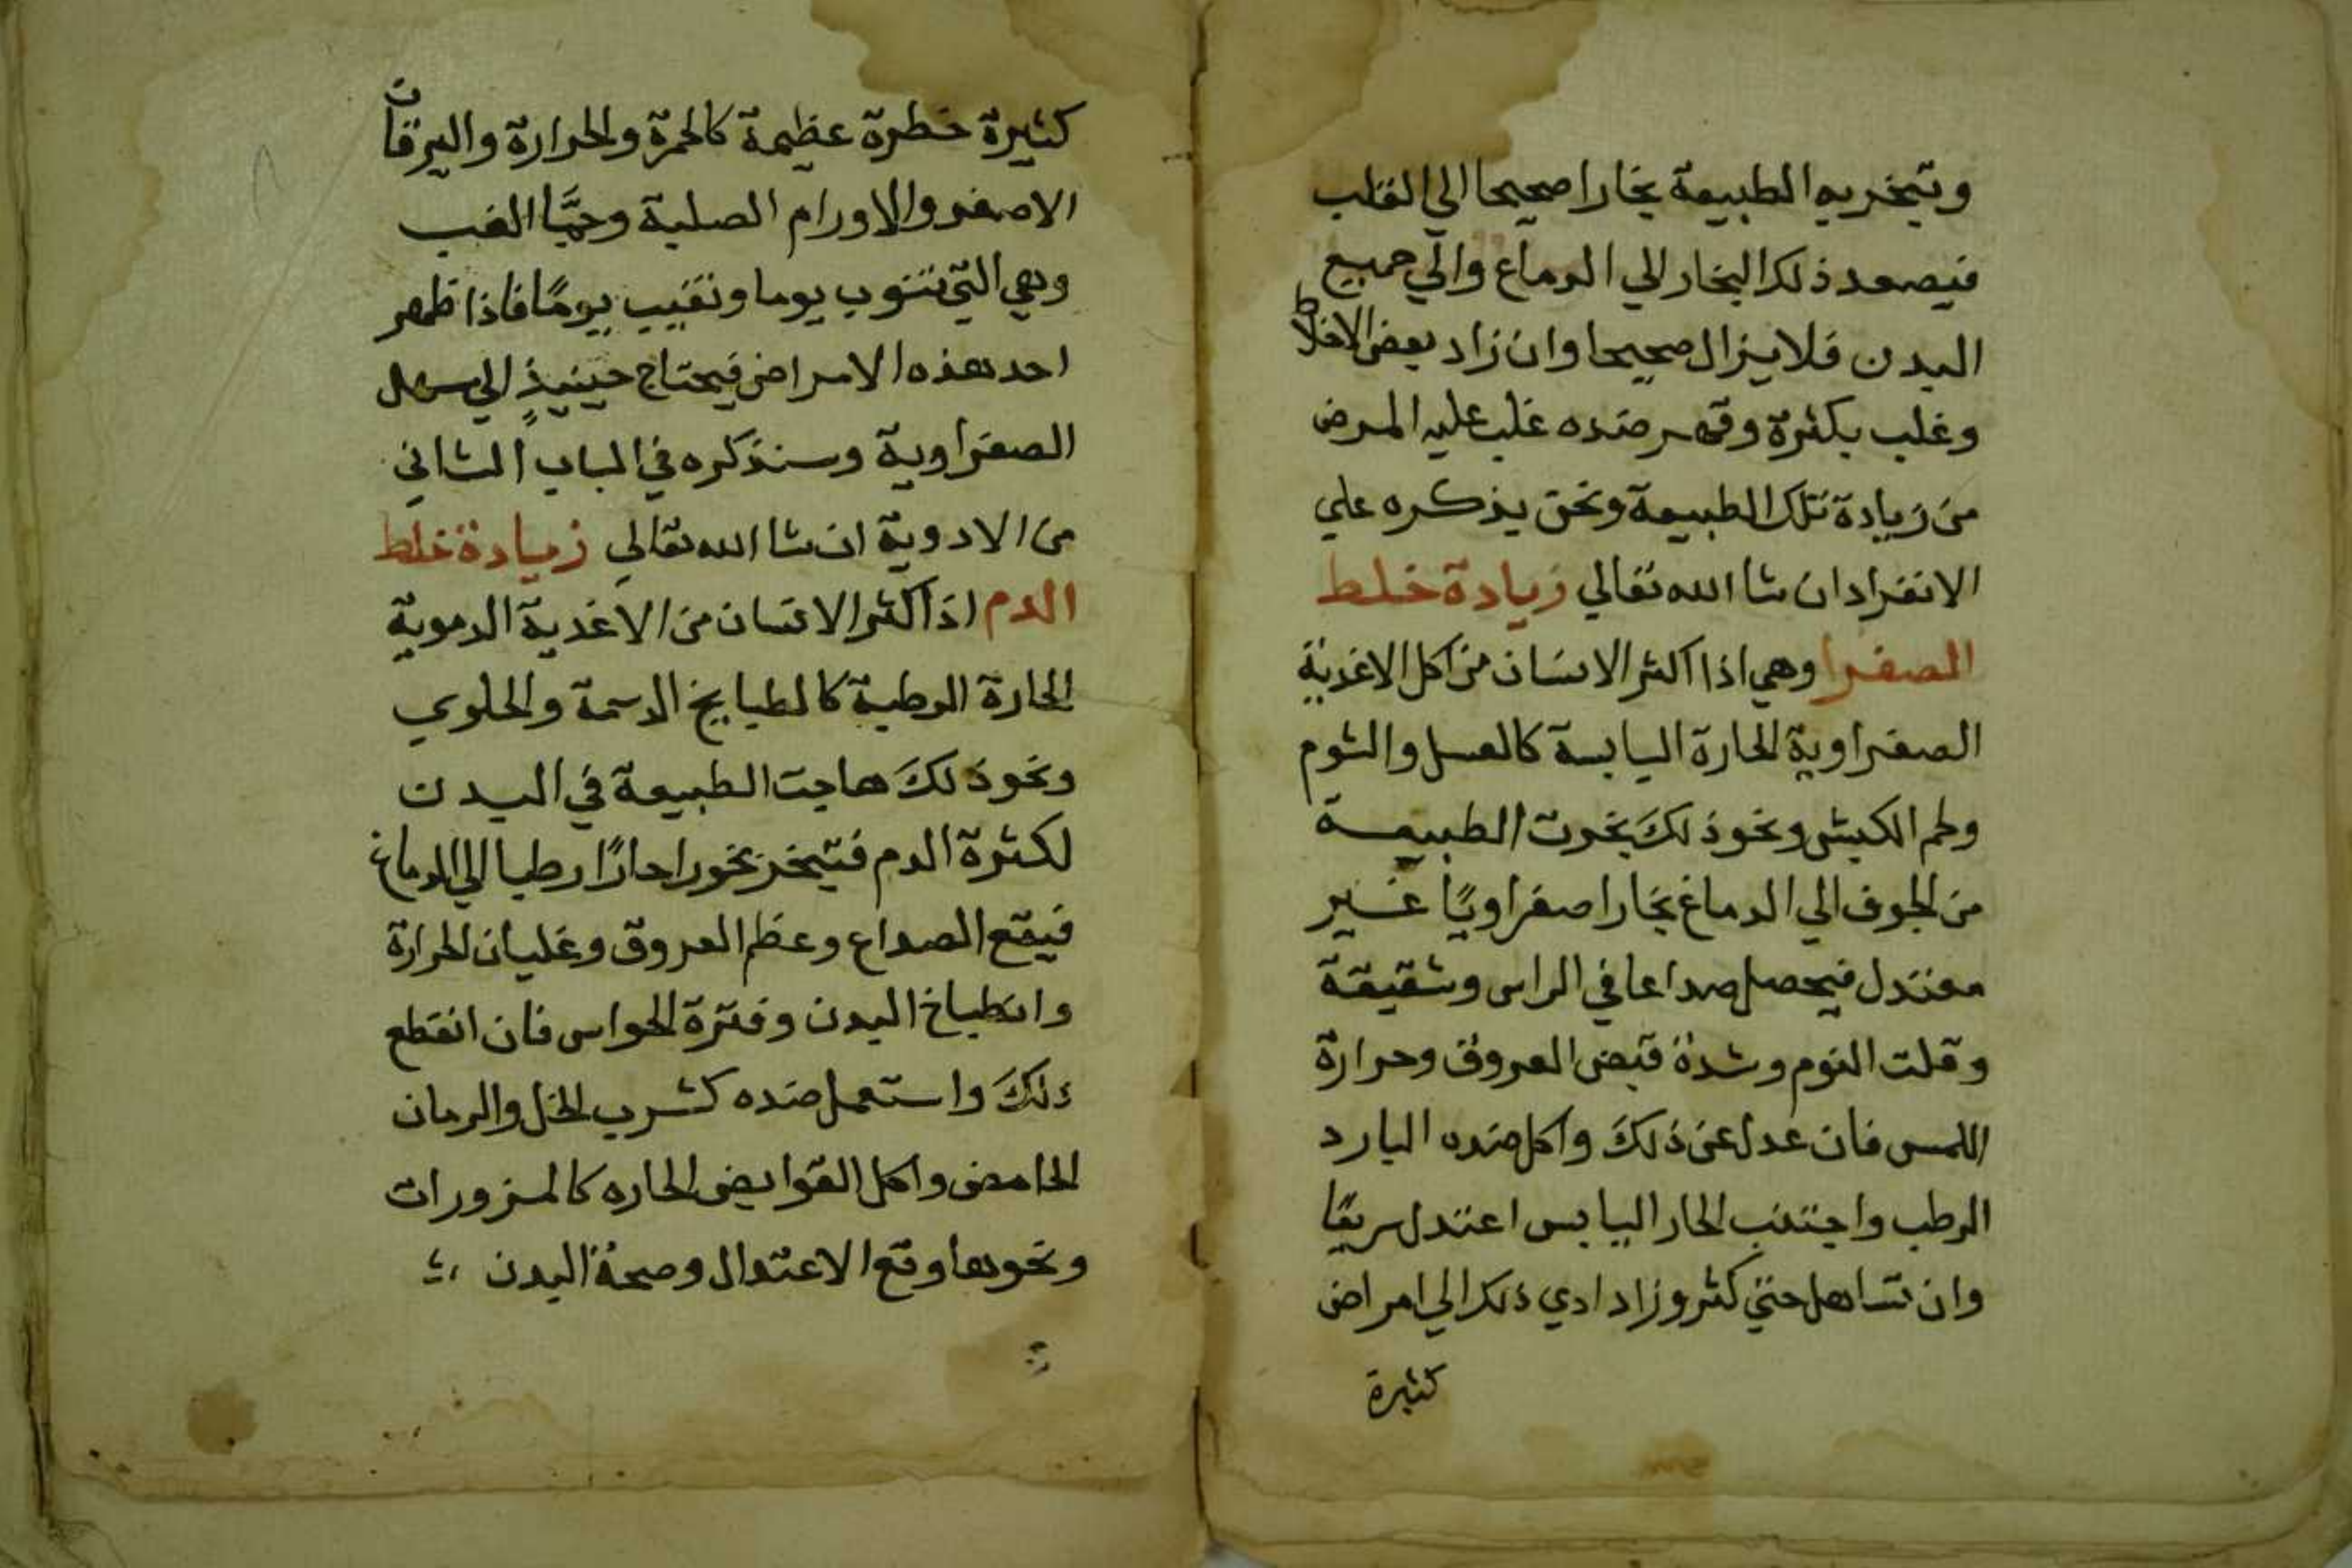 وتبخر به الطبيعة بخارا صحيحا الي القلب
فيصعد ذلك البخار الي الدماغ والي جميع
البدن فلا يزال صحيحا وان زاد بعض الاخلاط
وغلب بكثرة وقهر ضده غلب عليه المرض
من زيادة تلك الطبيعة ونحن يذكره علي
الانفراد ان شا الله تعالي زيادة خلط
الصفرا وهي اذا اكثر الانسان من اكل الاغذية
الصفراوية الحارة اليابسة كالعسل والثوم
ولحم الكبش ونحو ذلكَ بخرت الطبيعة
من الجوف الي الدماغ بخارا صفراويًا غير
معتدل فيحصل صداعا في الراس وشقيقة
وقلت النوم وشدة قبض العروق وحرارة
اللمس فان عدل عن ذلكَ واكل ضده البارد
الرطب واجتنب الحار اليابس اعتدل سريعًا
وان تساهل حتي كثر وزاد ادي ذلك الي امراض
كثيرة
كثيرة خطرة عظيمة كالحمرة والحرارة واليرقان
الاصفر والاورام الصلبة وحمَّا الغب
وهي التي تنوب يوما وتغيب يومًا فاذا ظهر
احد هذه الامراض فيحتاج حينيذٍ الي سهل
الصفراوية وسنذكره في الباب الثاني
من الادوية ان شا الله تعالي زيادة خلط
الدم اذا اكثر الانسان من الاغذية الدموية
الحارة الرطبة كالطبايخ الدسمة والحلوي
ونحو ذلكَ هاجت الطبيعة في البدن
لكثرة الدم فتبخر بخورا حارًا رطبا الي الدماغ
فيقع الصداع وعظم العروق وغليان الحرارة
وانطباخ البدن وفترة الحواس فان انقطع
ذلكَ واستعمل ضده كشرب الخل والرمان
الحامض واكل القوابض الحاره كالمزورات
ونحوها وقع الاعتدال وصحة البدن